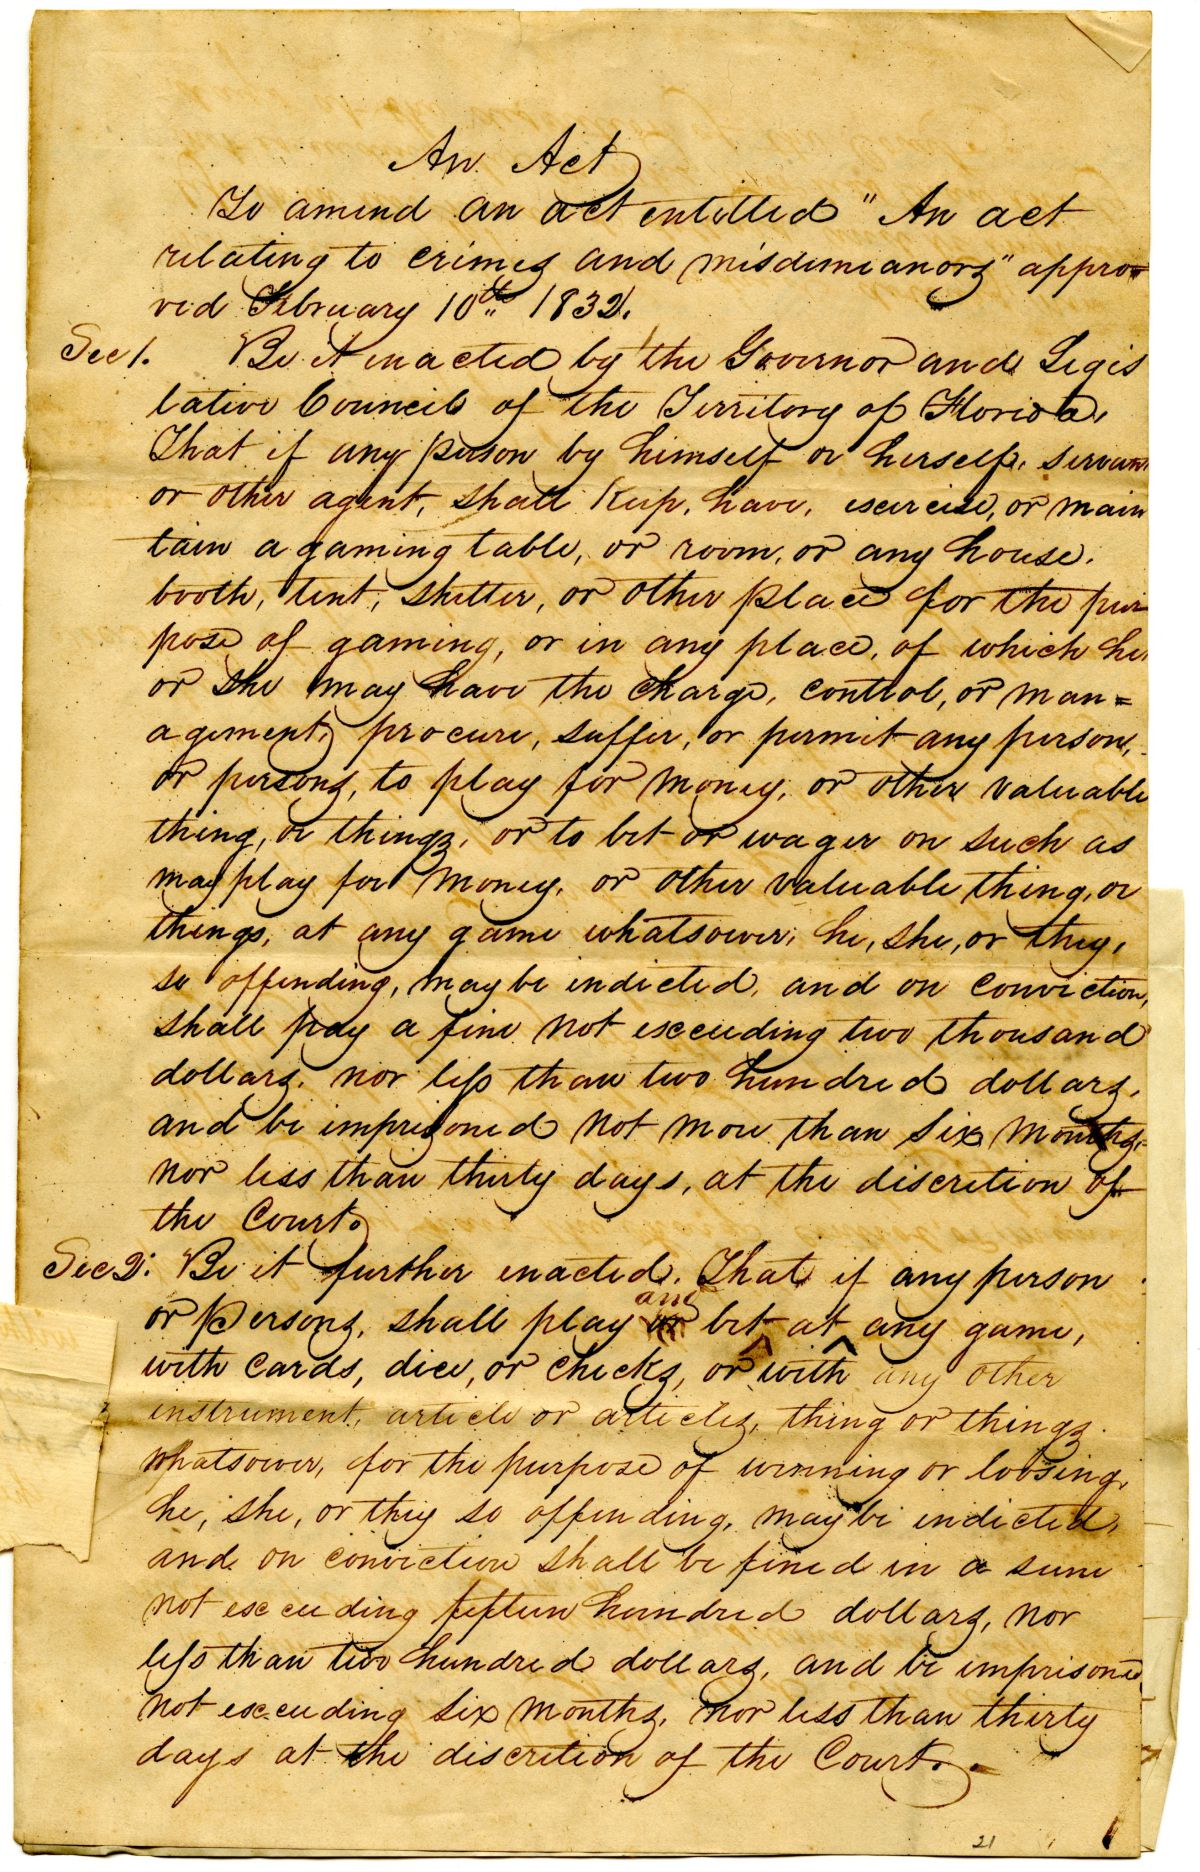 An Act
To amend an act entitled "An act
relating to crimes and misdemeanors" appro-
ved February 10th 1832.
Sec 1. Be it enacted by the Governor and Legis
lative Council of the Territory of Florida,
That if any person by himself or herself, servant
or other agent, shall Keep, have, exercise, or main
tain a gaming table, or room, or any house,
booth, tent, shelter, or other place for the pur
pose of gaming, or in any place, of which he,
or she may have the charge, control, or man=
agement, procure, suffer, or permit any person,
or persons, to play for money, or other valuable
thing, or things, or to bet or wager on such as
may play for money, or other valuable thing, or
things, at any game whatsoever, he, she, or they,
so offending, may be indicted, and on conviction,
shall pay a fine not exceeding two thousand
dollars, nor less than two hundred dollars,
and be imprisoned not more than six months,
nor less than thirty days, at the discretion of
the Court.
Sec 2. Be it further enacted, That if any person
or persons, shall play and bet at any game,
with cards, dice, or checks, or with any other
instrument, article or articles, thing or things
whatsoever, for the purpose of winning or loosing,
he, she, or they so offending, may be indicted,
and on conviction shall be fined in a sum
not exceeding fifteen hundred dollars, nor
less than two hundred dollars, and be imprisoned
not exceeding six months, nor less than thirty
days at the discretion of the Court.
21